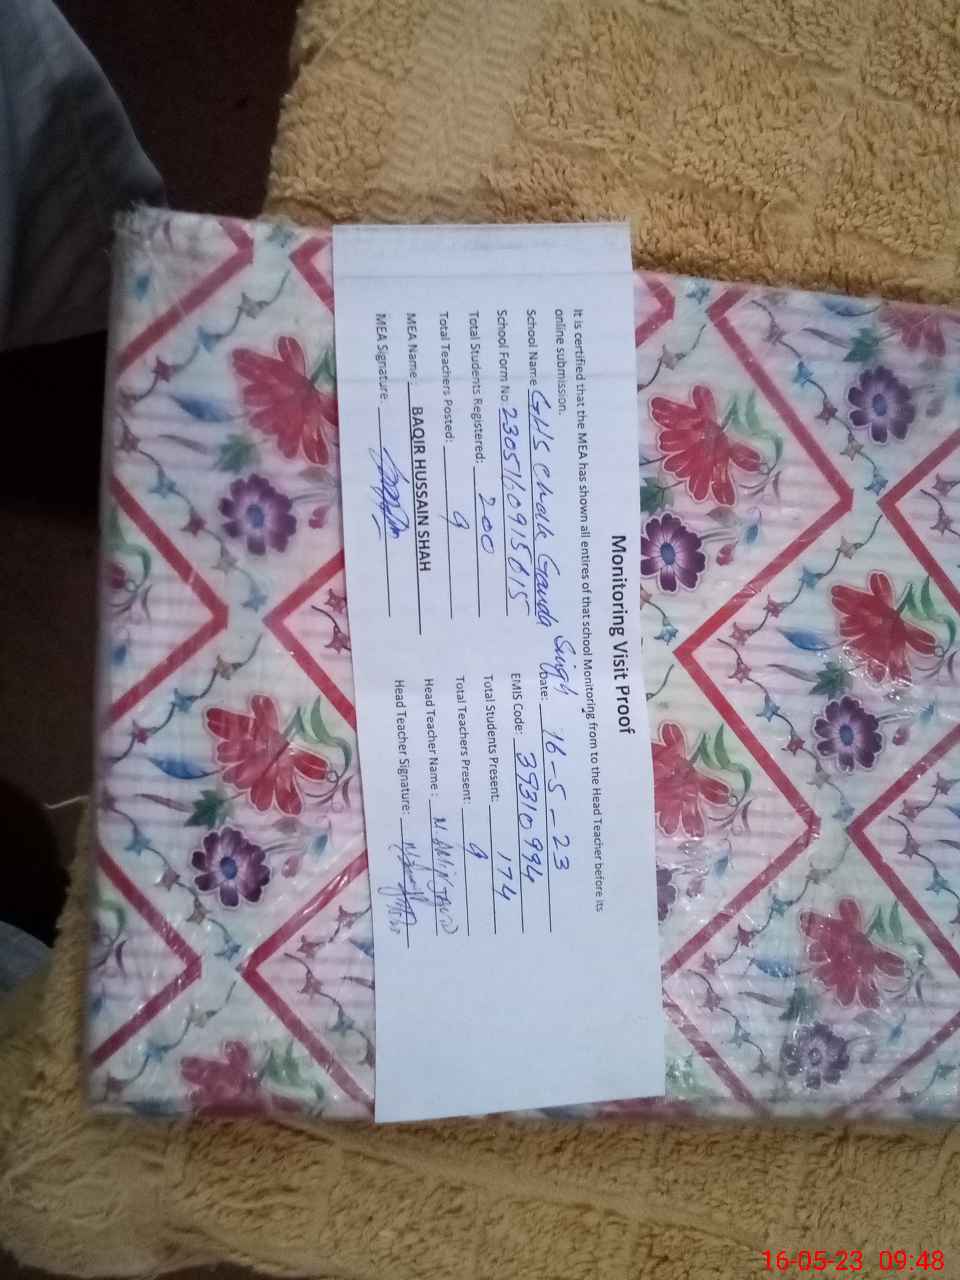 Monitoring Visit Proof
It is certified that the MEA has shown all entires of that school Monitoring from to the Head Teacher before its
online submission.
School Name GHS Chak Ganda Singh Date: 16-5-23
School Form No. EMIS Code: 39310994
Total Students Registered: 200 Total Students Present: 174
Total Teachers Posted: 9 Total Teachers Present: 9
MEA Name BAQIR HUSSAIN SHAH Head Teacher Name:
MEA Signature: Head Teacher Signature:
16-05-23 09:48